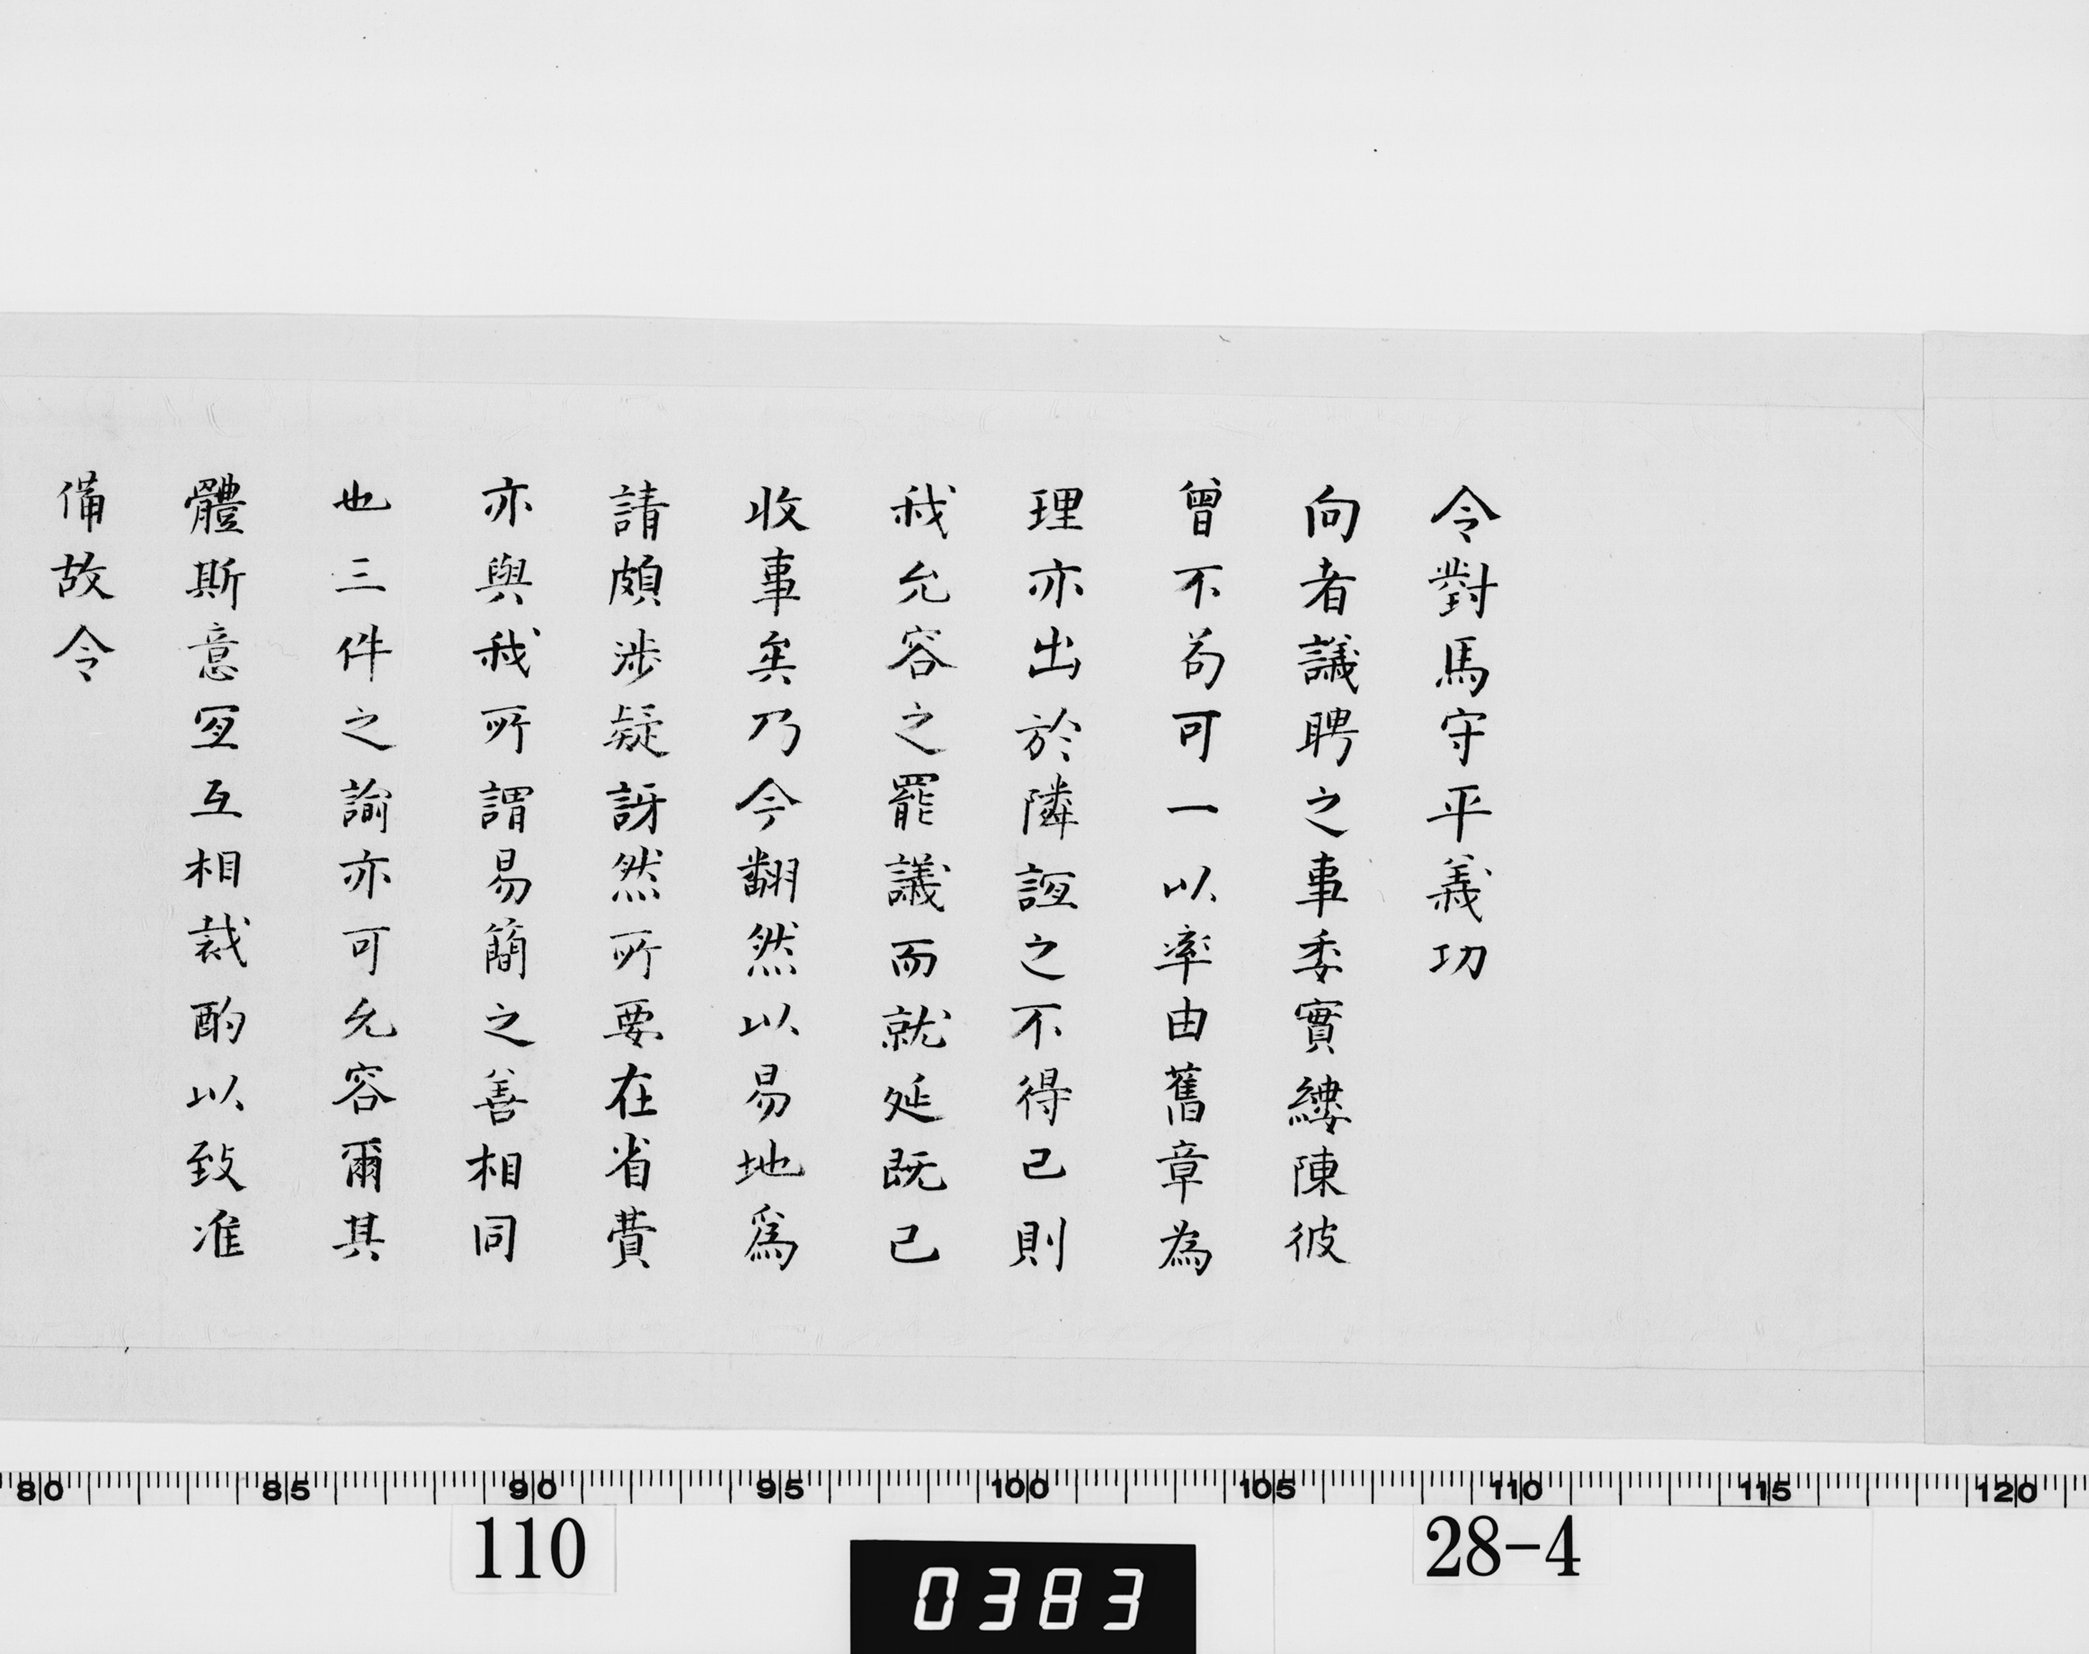 令對馬守平義功
向者議聘之事委實縷陳彼
曾不苟可一以率由舊章為
理亦出於隣誼之不得已則
我允容之罷議而就延既已
收事矣乃今翻然以易地爲
請頗涉疑訝然所要在省費
亦與我所謂易簡之善相同
也三件之諭亦可允容爾其
體斯意宜互相裁酌以致准
備故令
80 85 90 95 100 105 110 115 120
110 28-4
0383